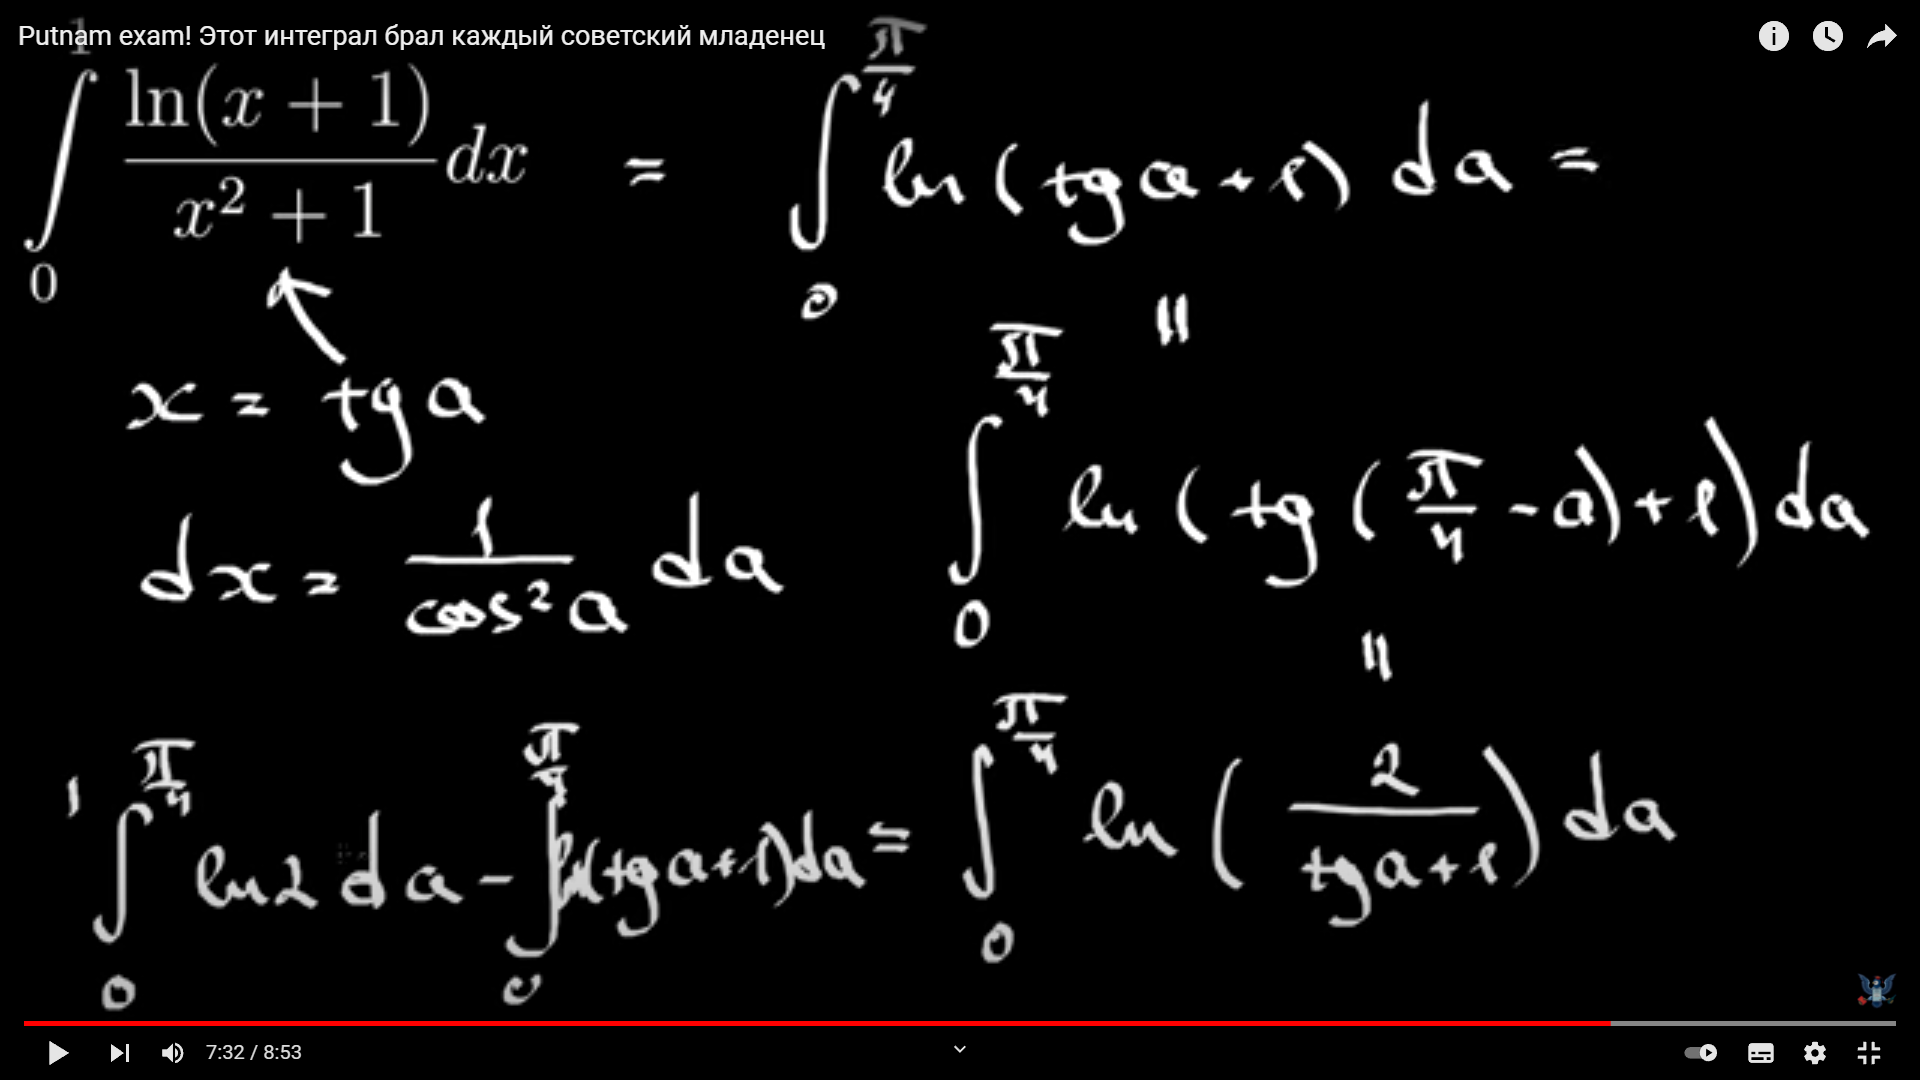 Putnam exam! Этот интеграл брал каждый советский младенец
∫₀¹ ln(x + 1) / (x² + 1) dx = ∫₀^(π/4) ln(tg a + 1) da =
=
x = tg a
∫₀^(π/4) ln(tg(π/4 - a) + 1) da
dx = 1 / cos² a da
=
1 ∫₀^(π/4) ln 2 da - ∫₀^(π/4) ln(tg a + 1) da = ∫₀^(π/4) ln(2 / (tg a + 1)) da
7:32 / 8:53